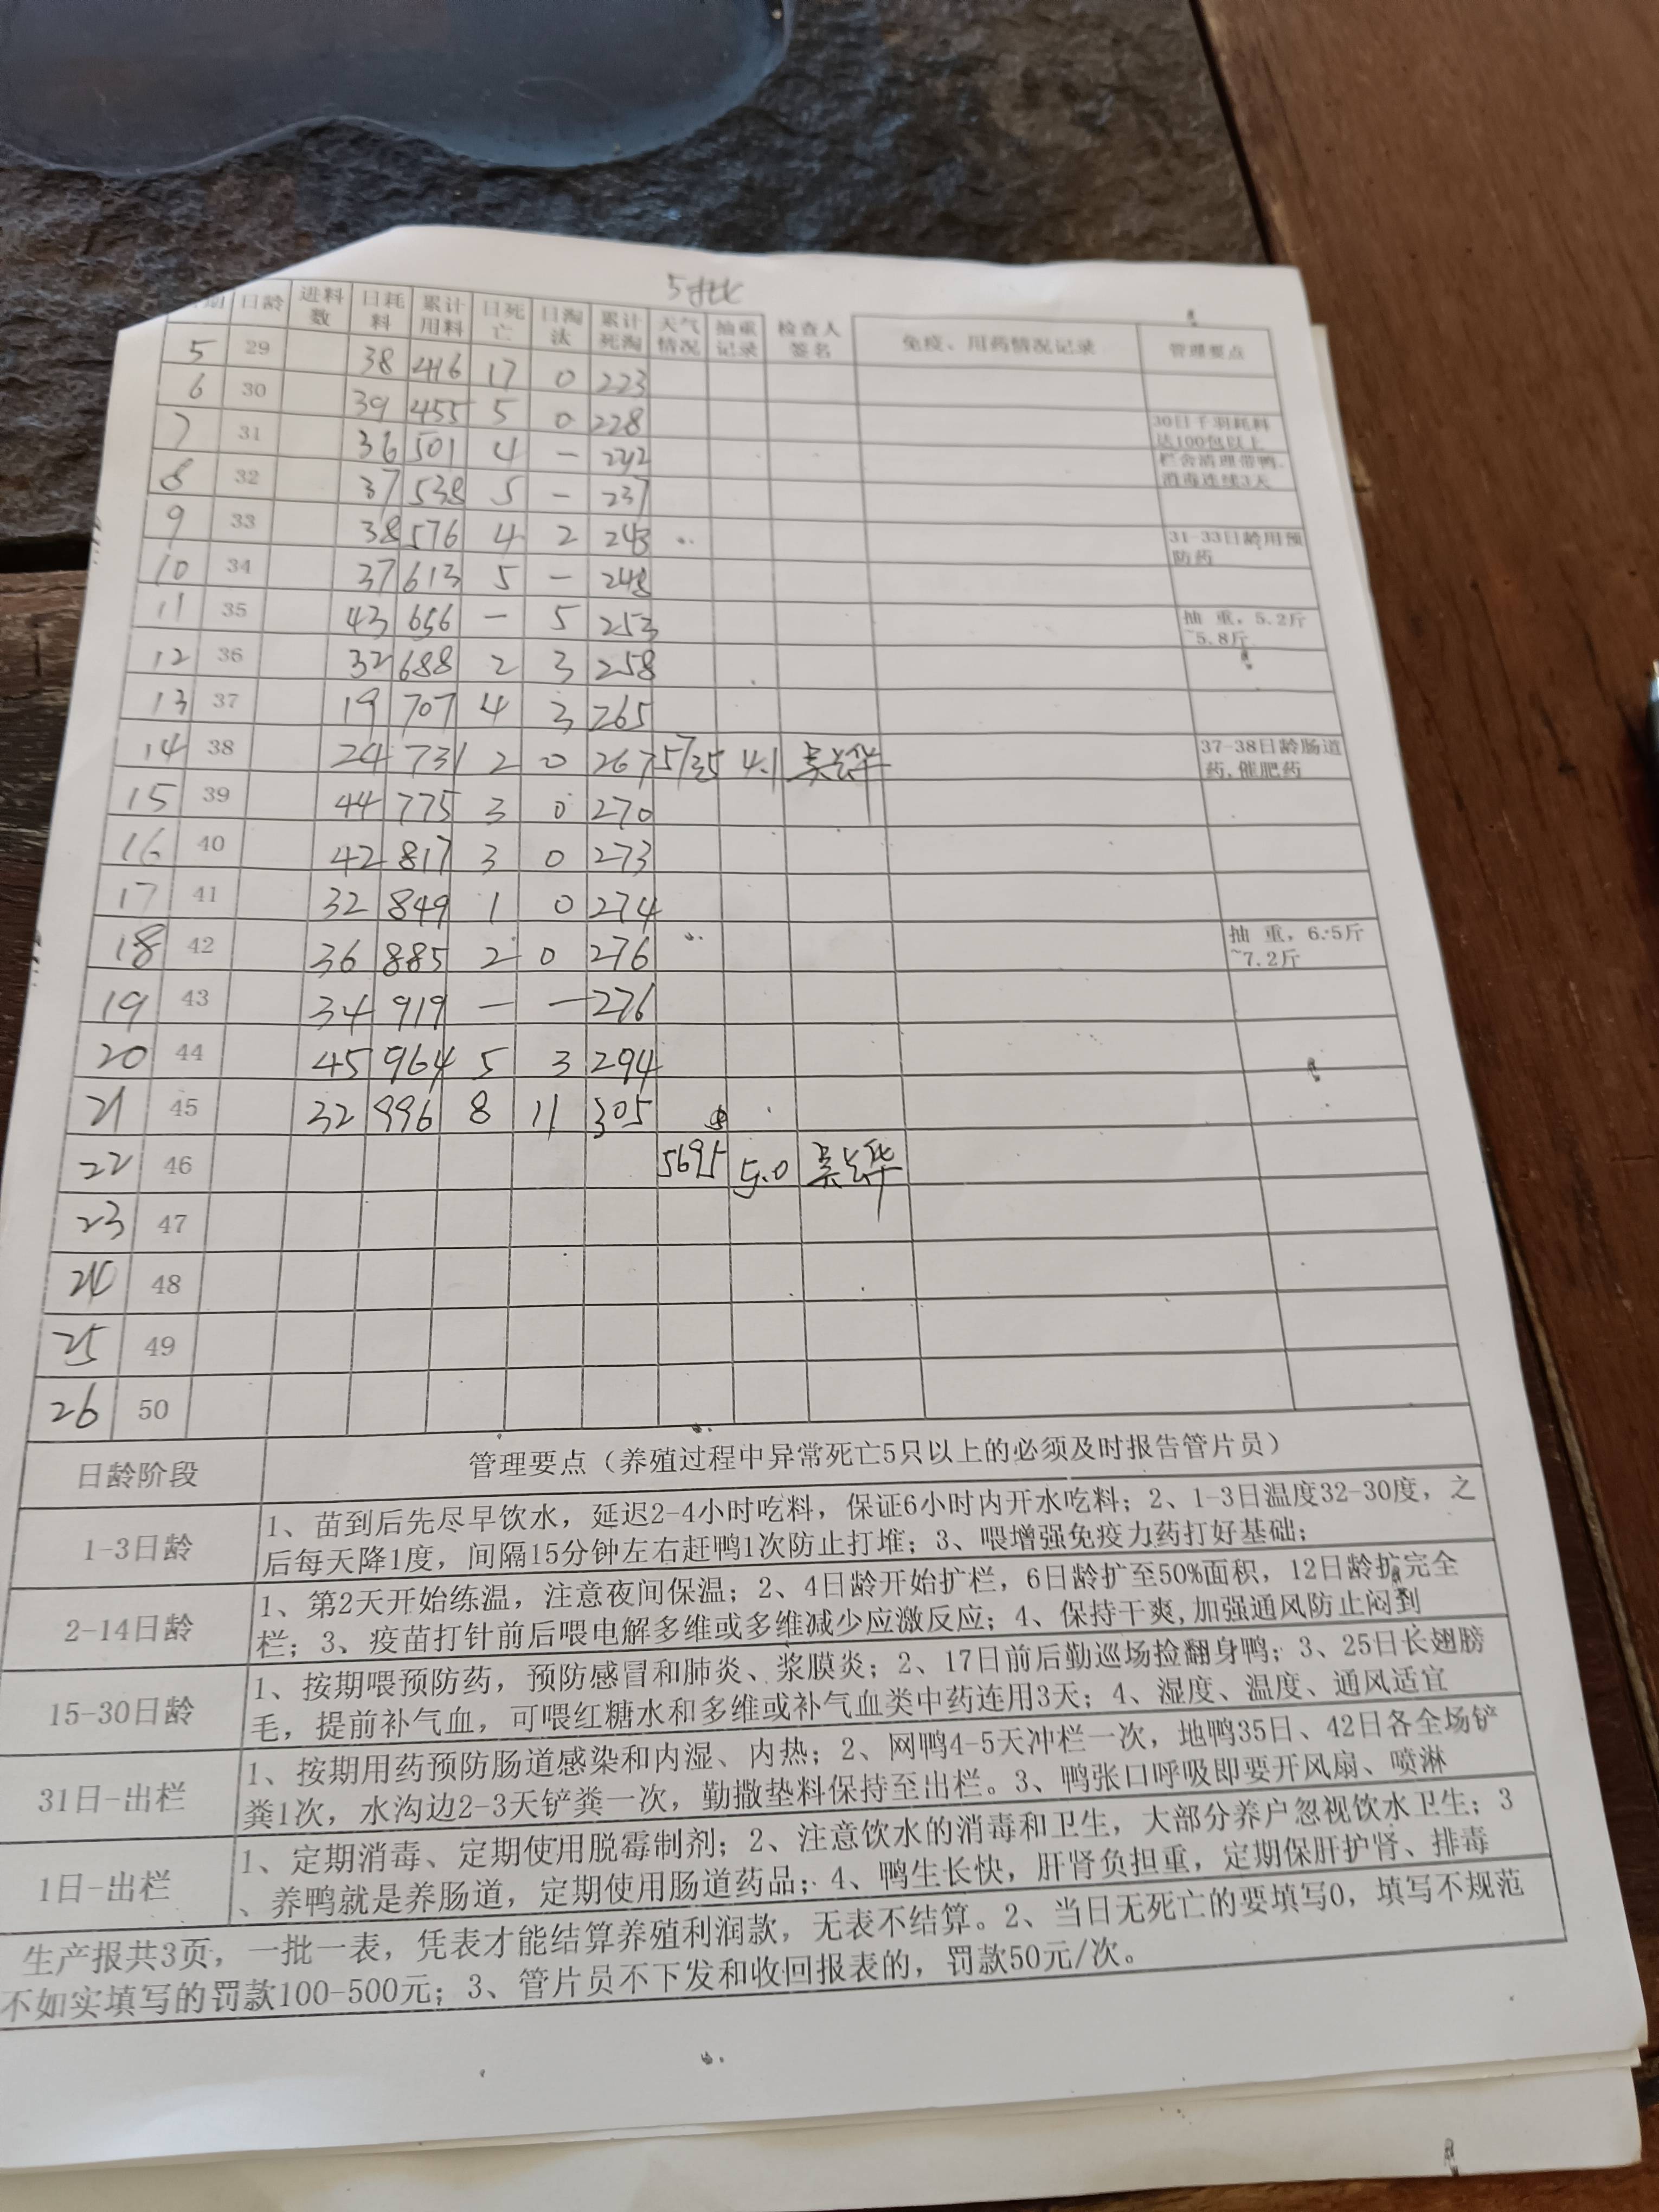 5批
期 日龄 进料数 日耗料 累计用料 日死亡 日淘汰 累计死淘 天气情况 抽重记录 检查人签名 免疫、用药情况记录 管理要点
5 29 38 416 17 0 223
6 30 39 455 5 0 228 30日千羽耗料达100包以上
7 31 36 501 4 - 232 栏舍清理带鸭消毒连续3天
8 32 37 538 5 - 237
9 33 38 576 4 2 243 31-33日龄用预防药
10 34 37 613 5 - 248
11 35 43 656 - 5 253 抽 重，5.2斤~5.8斤
12 36 32 688 2 3 258
13 37 19 707 4 3 265
14 38 24 731 2 0 267 5735 4.1 37-38日龄肠道药,催肥药
15 39 44 775 3 0 270
16 40 42 817 3 0 273
17 41 32 849 1 0 274
18 42 36 885 2 0 276 抽 重，6.5斤~7.2斤
19 43 34 919 - - 276
20 44 45 964 5 3 294
21 45 32 996 8 11 305
22 46 5695 5.0
23 47
24 48
25 49
26 50
日龄阶段 管理要点（养殖过程中异常死亡5只以上的必须及时报告管片员）
1-3日龄 1、苗到后先尽早饮水，延迟2-4小时吃料，保证6小时内开水吃料；2、1-3日温度32-30度，之
后每天降1度，间隔15分钟左右赶鸭1次防止打堆；3、喂增强免疫力药打好基础；
2-14日龄 1、第2天开始练温，注意夜间保温；2、4日龄开始扩栏，6日龄扩至50%面积，12日龄扩完全
栏；3、疫苗打针前后喂电解多维或多维减少应激反应；4、保持干爽,加强通风防止闷到
15-30日龄 1、按期喂预防药，预防感冒和肺炎、浆膜炎；2、17日前后勤巡场捡翻身鸭；3、25日长翅膀
毛，提前补气血，可喂红糖水和多维或补气血类中药连用3天；4、湿度、温度、通风适宜
31日-出栏 1、按期用药预防肠道感染和内湿、内热；2、网鸭4-5天冲栏一次，地鸭35日、42日各全场铲
粪1次，水沟边2-3天铲粪一次，勤撒垫料保持至出栏。3、鸭张口呼吸即要开风扇、喷淋
1日-出栏 1、定期消毒、定期使用脱霉制剂；2、注意饮水的消毒和卫生，大部分养户忽视饮水卫生；3
、养鸭就是养肠道，定期使用肠道药品；4、鸭生长快，肝肾负担重，定期保肝护肾、排毒
生产报共3页，一批一表，凭表才能结算养殖利润款，无表不结算。2、当日无死亡的要填写0，填写不规范
不如实填写的罚款100-500元；3、管片员不下发和收回报表的，罚款50元/次。